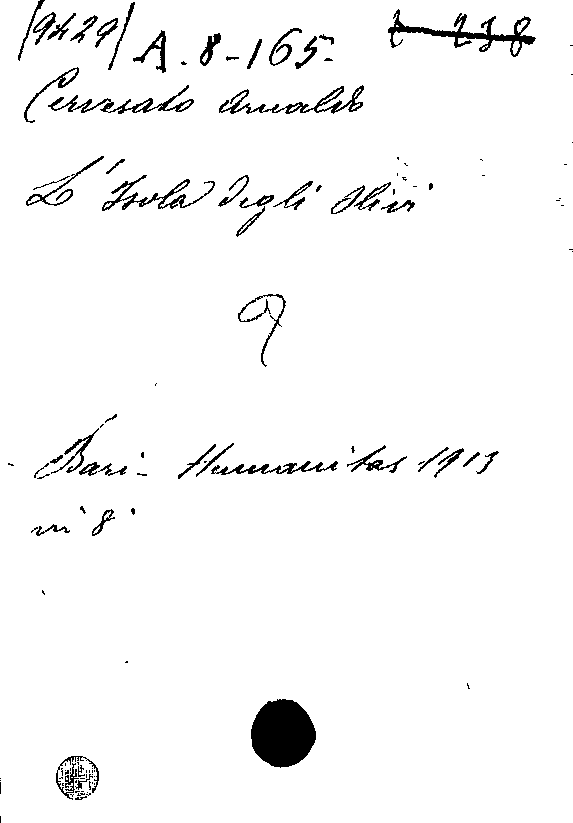 /9429/ A. 8-165.
Cervesato Arnaldo
L'Isola degli Ulivi
Bari - Humanitas 1913
in 8°